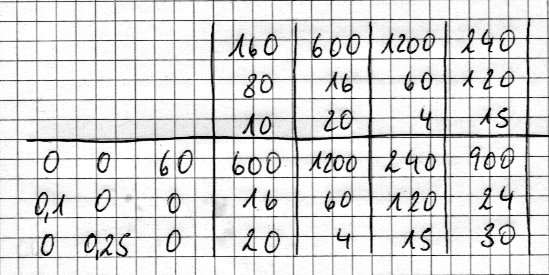 160 600 1200 240
80 16 60 120
10 20 4 15
0 0 60 600 1200 240 900
0,1 0 0 16 60 120 24
0 0,25 0 20 4 15 30